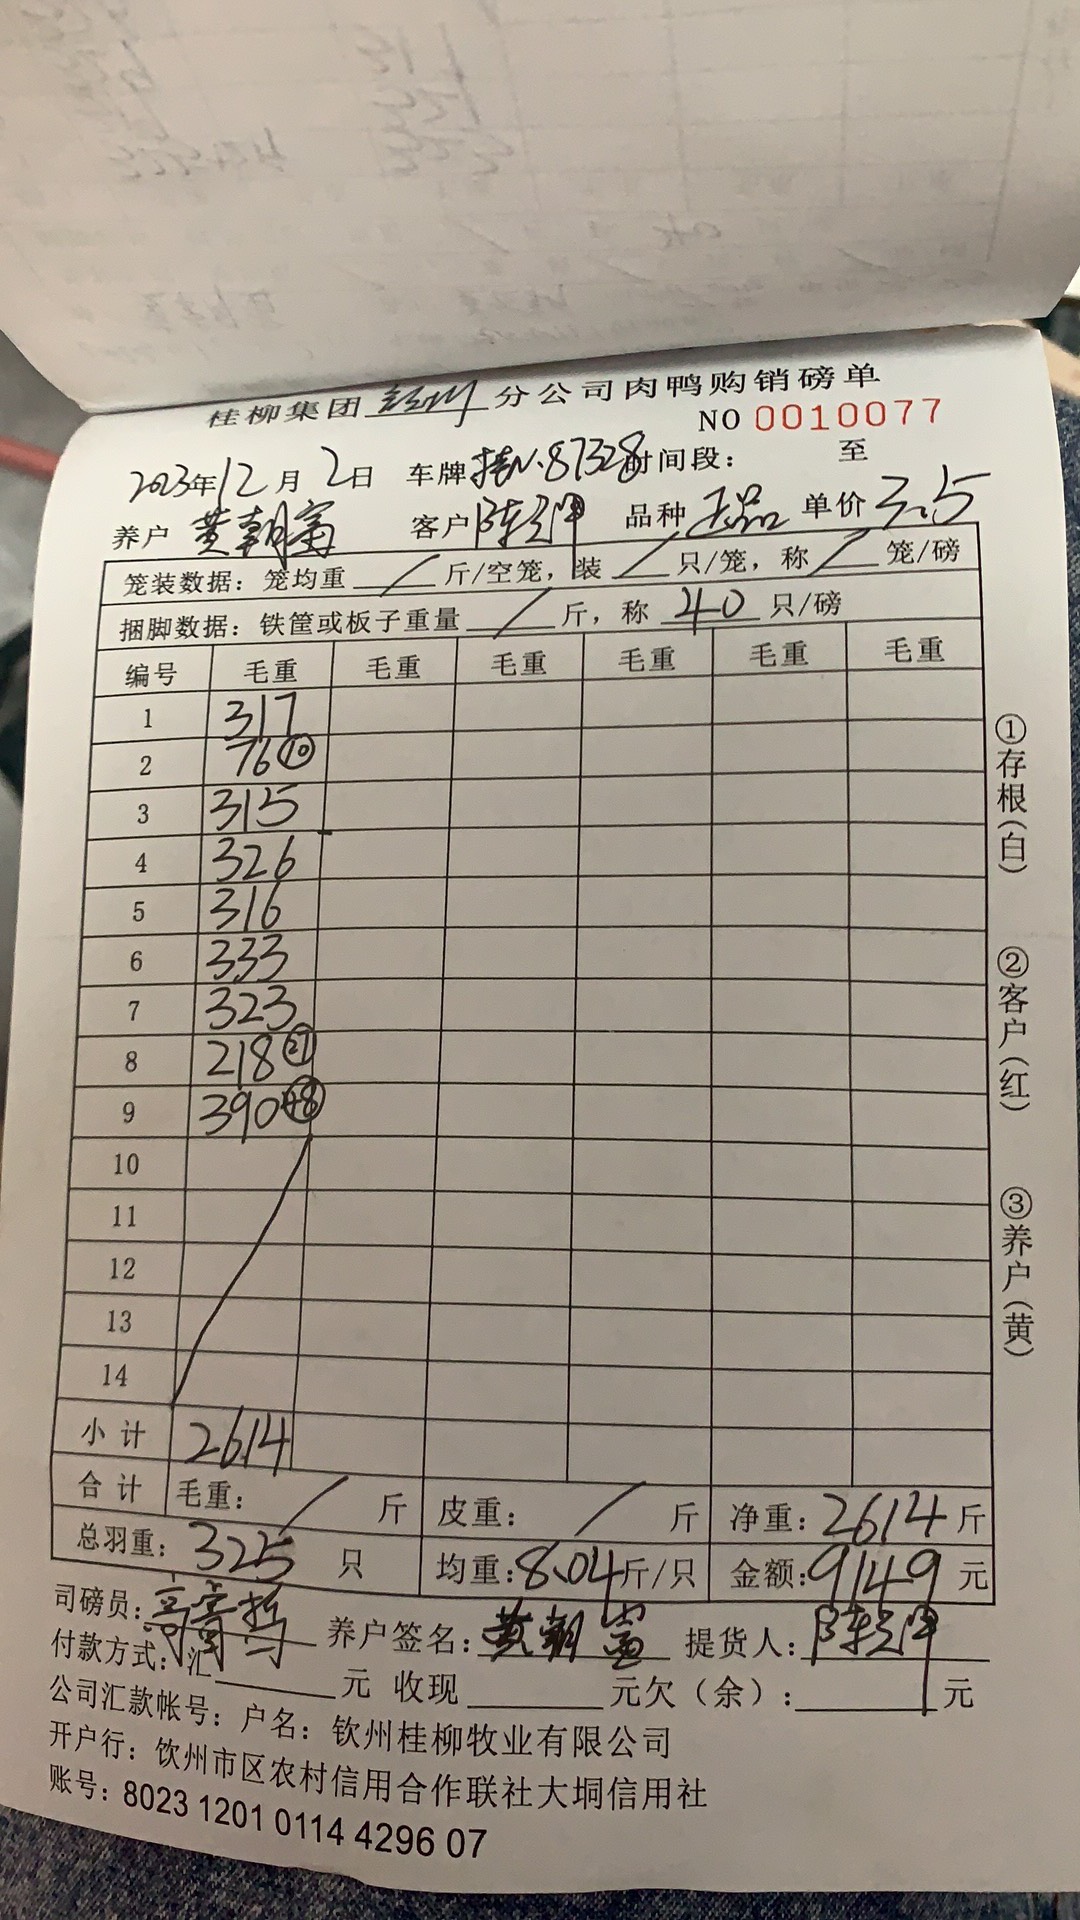 桂柳集团 分公司肉鸭购销磅单
NO 0010077
2023年12月2日 车牌桂N·87328时间段： 至
养户 黄朝富 客户 陈 品种 正品 单价 3.5
笼装数据：笼均重 / 斤/空笼，装 / 只/笼，称 / 笼/磅
捆脚数据：铁筐或板子重量 / 斤，称 40 只/磅
编号 毛重 毛重 毛重 毛重 毛重 毛重
1 317
2 76 ⑩
3 315
4 326
5 316
6 333
7 323
8 218 ㉗
9 390 ㊽
10
11
12
13
14
小计 2614
合计 毛重： / 斤 皮重： / 斤 净重：2614 斤
总羽重：325 只 均重：8.04斤/只 金额：9149 元
司磅员： 养户签名：黄朝富 提货人：陈
付款方式：汇 元 收现 元欠（余）： 元
公司汇款帐号：户名：钦州桂柳牧业有限公司
开户行：钦州市区农村信用合作联社大垌信用社
账号：8023 1201 0114 4296 07
①存根（白）
②客户（红）
③养户（黄）